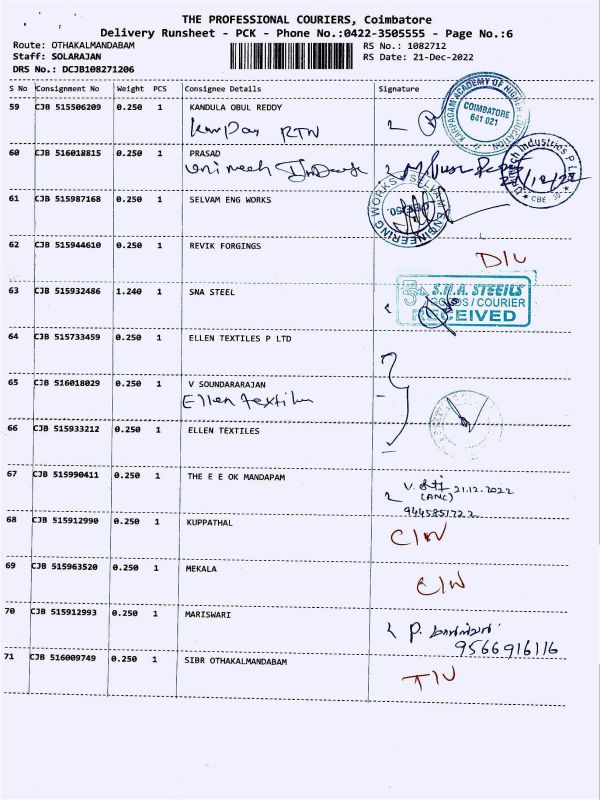 THE PROFESSIONAL COURIERS, Coimbatore
Delivery Runsheet - PCK - Phone No.:0422-3505555 - Page No.:6
Route: OTHAKALMANDABAM RS No.: 1082712
Staff: SOLARAJAN RS Date: 21-Dec-2022
DRS No.: DCJB108271206
S No Consignment No Weight PCS Consignee Details Signature
59 CJB 515506209 0.250 1 KANDULA OBUL REDDY
RTN
KARPAGAM ACADEMY OF HIGHER EDUCATION
COIMBATORE
641 021
60 CJB 516018815 0.250 1 PRASAD
Industries P
CBE
61 CJB 515987168 0.250 1 SELVAM ENG WORKS
SELVAM ENGINEERING WORKS
62 CJB 515944610 0.250 1 REVIK FORGINGS
63 CJB 515932486 1.240 1 SNA STEEL
S.N.A. STEEILS
GOODS / COURIER
RECEIVED
64 CJB 515733459 0.250 1 ELLEN TEXTILES P LTD
65 CJB 516018029 0.250 1 V SOUNDARARAJAN
Ellen textiles
66 CJB 515933212 0.250 1 ELLEN TEXTILES
67 CJB 515990411 0.250 1 THE E E OK MANDAPAM
21.12.2022
68 CJB 515912990 0.250 1 KUPPATHAL
69 CJB 515963520 0.250 1 MEKALA
70 CJB 515912993 0.250 1 MARISWARI
P.
9566916116
71 CJB 516009749 0.250 1 SIBR OTHAKALMANDABAM